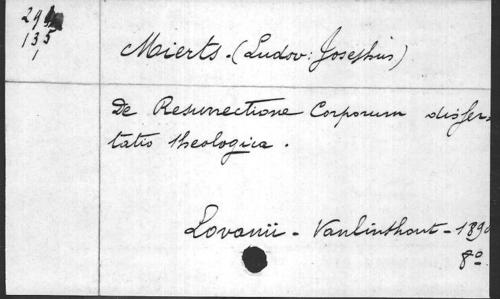 135
1
Mierts - (Ludov: Josephus)
De Resurrectione Corporum disser-
tatio theologica.
Lovanii - Vanlinthout - 1890
8º